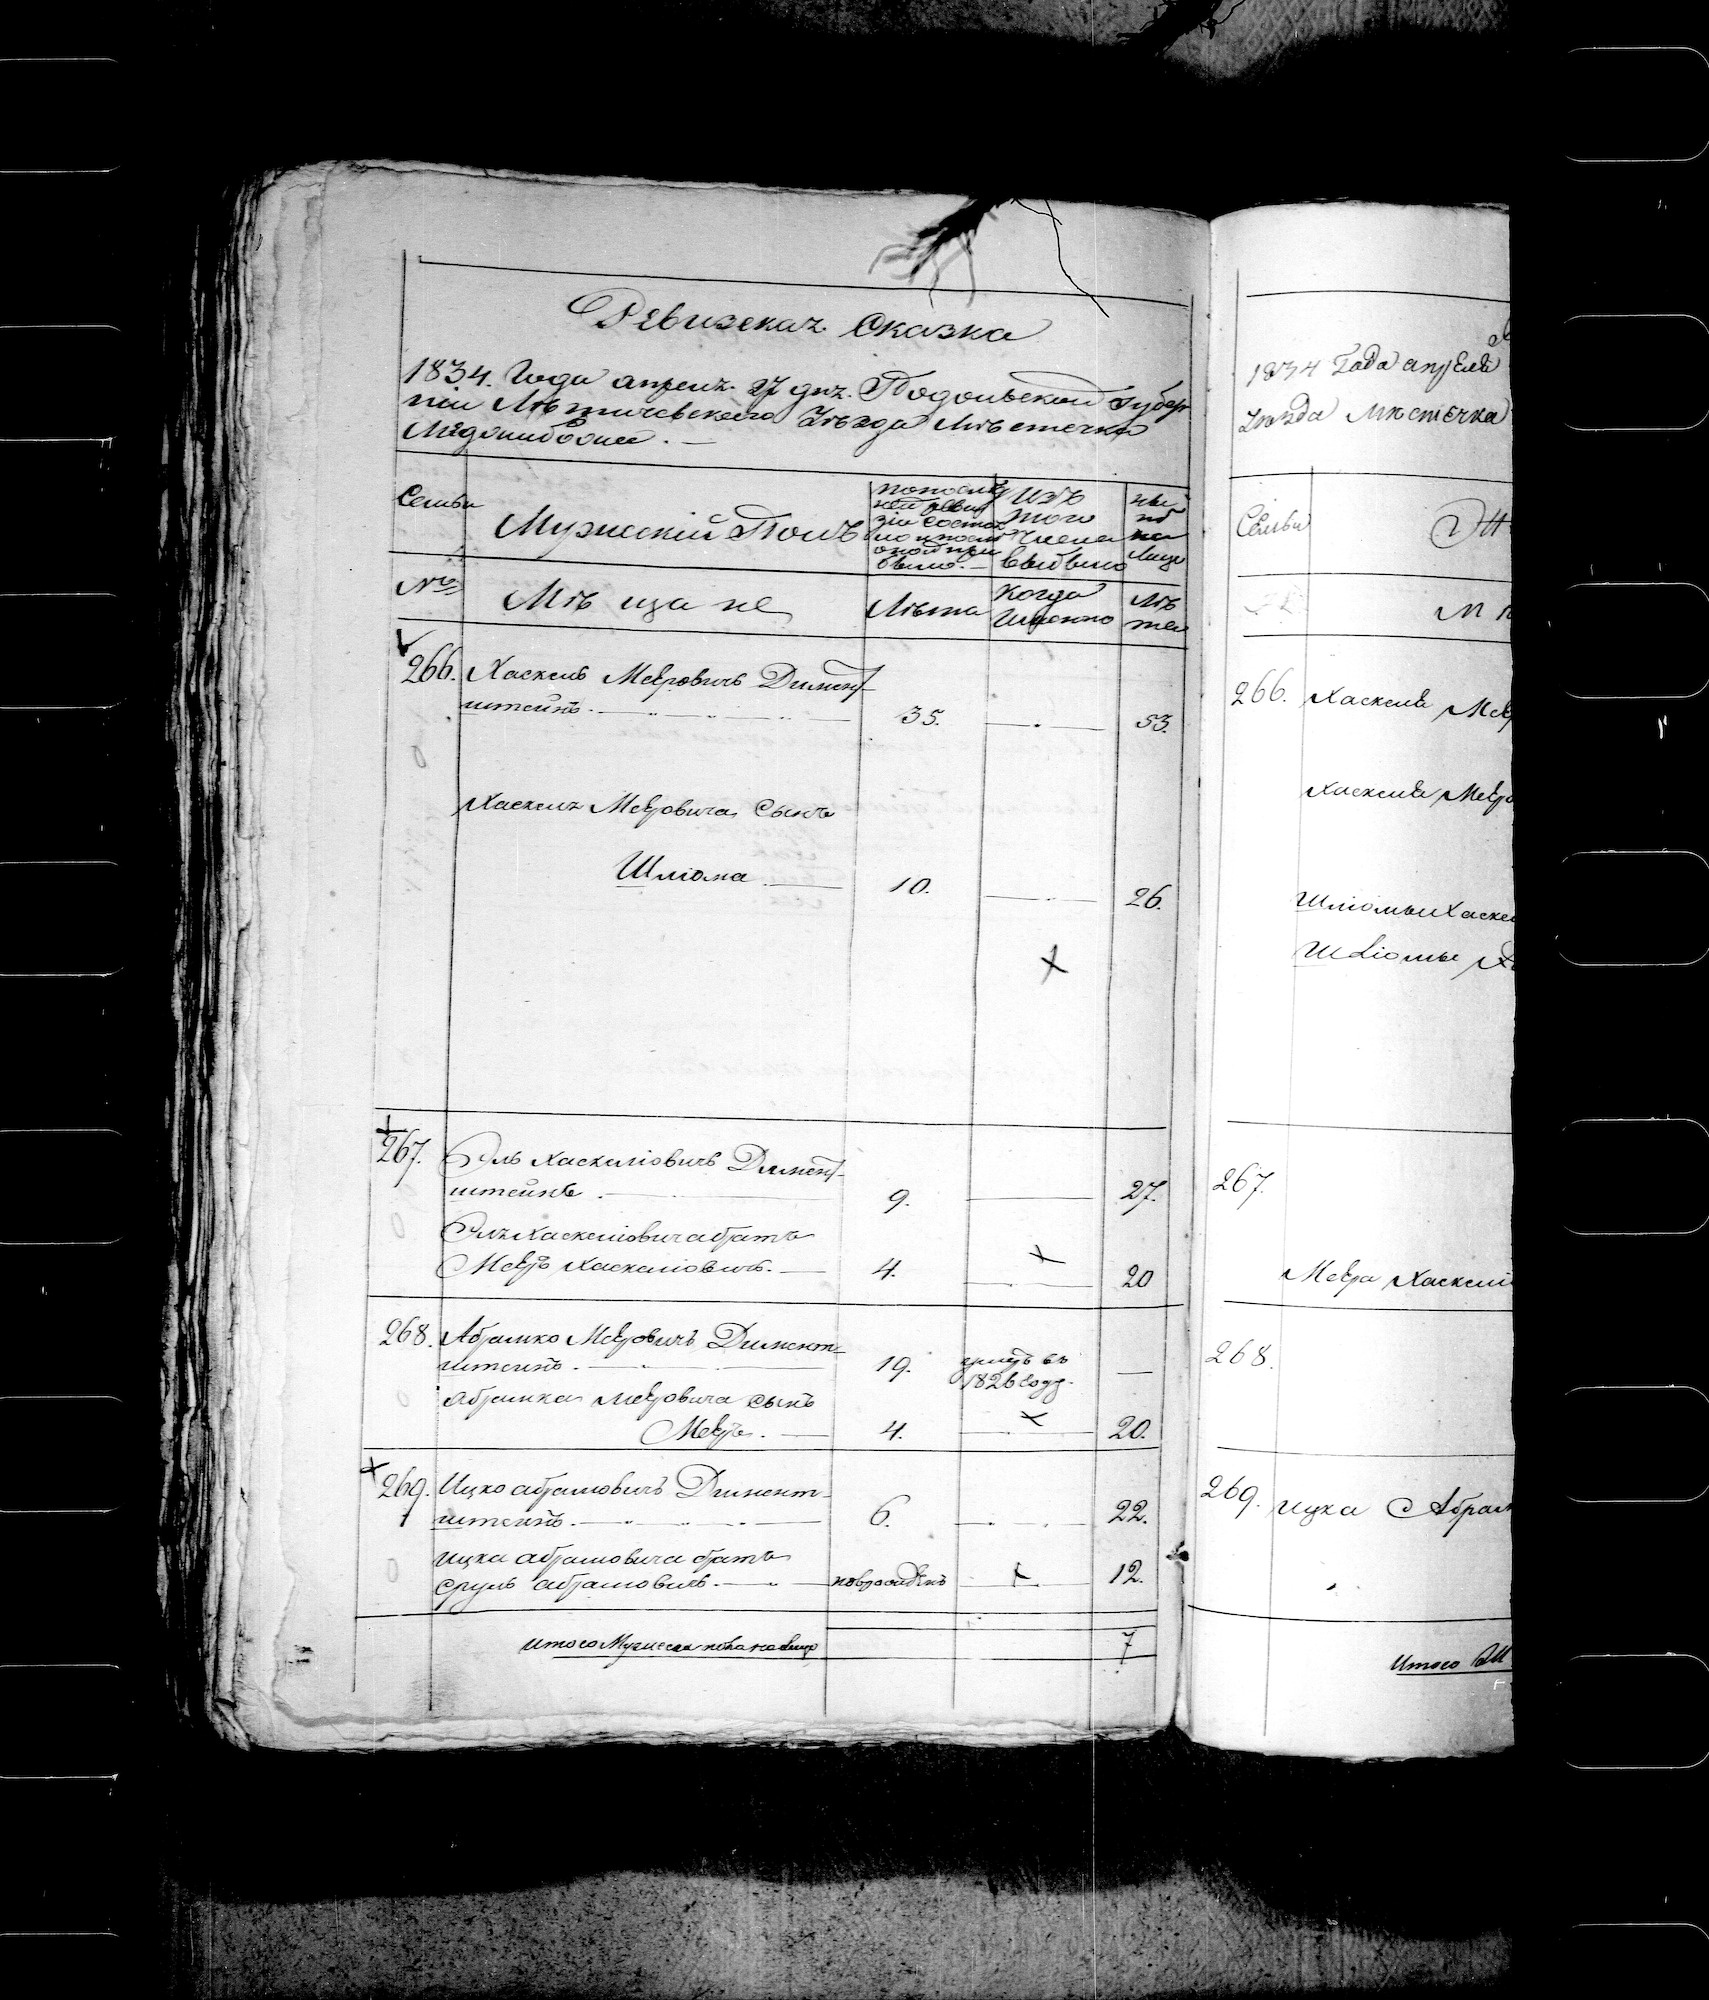 Ревизская Сказка
1834. Года апреля 27 дня. Подольской Губер
нии Летичевского Уѣзда Мѣстечка
Меджибожа. —
Семьи
Мужескій Полъ
по послѣд
ней реви
зіи состоя
ло и послѣ
оной при
было. —
Изъ
того
числа
выбыло
ны
нѣ
на
лице
№
Мѣщане
Лѣта
Когда
Именно
Лѣ
та
266. Хаскель Меѣровичъ Димент-
штейнъ. — 35. — 53.
Хаскеля Меѣровича Сынъ
Шліома. — 10. — 26.
267. Эль Хаскеліовичъ Димент-
штейнъ. — 9. — 27.
Эля Хаскеліовича братъ
Меѣръ Хаскеліовичъ. — 4. — 20
268. Абрамко Меѣровичъ Димент-
штейнъ. — 19. умеръ въ —
1826 году.
Абрамка Меѣровича сынъ
Меѣръ. — 4. — 20.
269. Ицко Абрамовичъ Димент-
штейнъ. — 6. — 22.
Ицка Абрамовича братъ
Сруль Абрамовичъ. — новорожденъ — 12.
Итого Мужеска пола на лицо 7
1834 Года апрѣля
Уѣзда Мѣстечка
Семьи
266. Хаскеля Меѣр
Хаскеля Меѣро
Шліомы Хаске
Шліомы Ха
267.
Меѣра Хаскелі
268.
269. Ицка Абрам
Итого